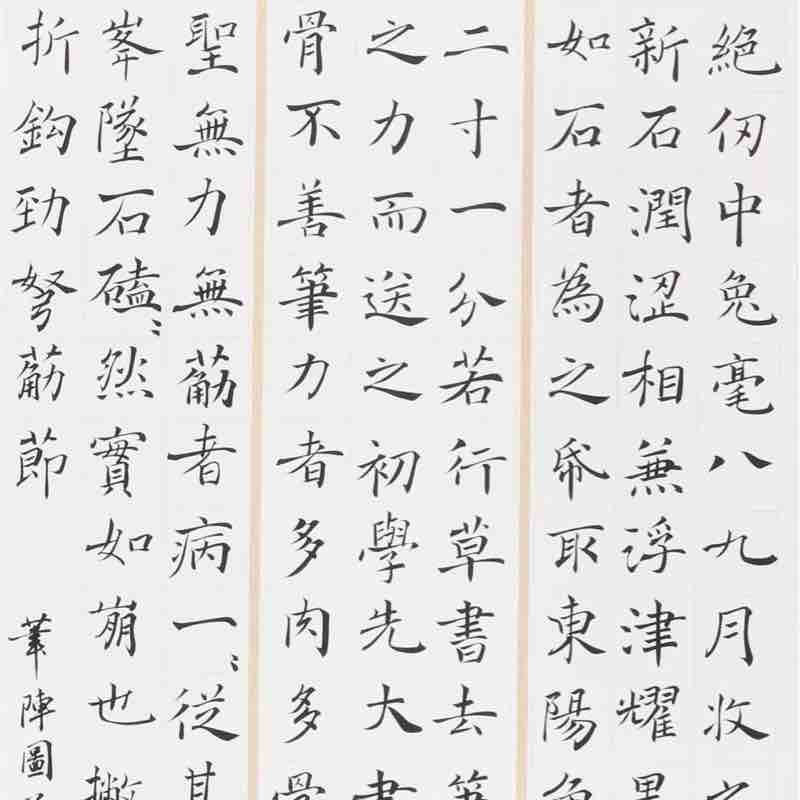 絕仞中兔毫八九月收之
新石潤澀相兼浮津耀墨
如石者為之帋取東陽魚
二寸一分若行草書去筆
之力而送之初學先大書
骨不善筆力者多肉多骨
聖無力無筋者病一〻從其
峯墜石磕〻然實如崩也撇
折鈎勁弩筋節
筆陣圖